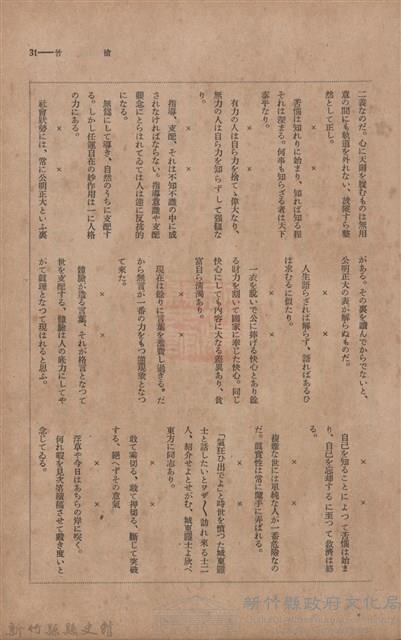 31―竹塹
二義なのだ。心に天爵を履むものは無用
意の間にも軌道を外れない、談戲すら整
然として正し。
×　×
苦惱は知りに始まり、知れば知る程
それは深まる。何事も知らざる者は天下
泰平なり。
×　×
有力の人は自ら力を捨てゝ偉大なり、
無力の人は自ら力を知らずして强猛な
り。
×　×
指導、支配、それは不知不識の中に成
されなければならない。指導意識や支配
觀念にとらはれてゐては人は遂に反抗的
になる。
無爲にして導き、自然のうちに支配す
る。しかし任運自在の妙作用は一に人格
の力にある。
×　×
社會狀勢には、常に公明正大といふ裏
がある。その裏を讀んでからでないと、
公明正大の表が解らぬものだ。
×　×
人生語らざれば解らず、語ればあるひ
は求むるに似たり。
×　×
一衣を脱いで公に捧げる快心とあり餘
る財力を割いて國家に奉じた快心。同じ
快心にしても內容に大なる差異あり、貧
富自ら淸濁あり。
×　×
現在は餘りに言葉を濫費し過ぎる。だ
から無言が一番の力をもつ逆現象となつ
て來た。
×　×
體驗が造る言葉、それが格言となつて
世を支配する、體驗は人の底力にしてや
がて眞理となつて現はれると思ふ。
自己を知ることによつて苦惱は始ま
り、自己を忘却するに至つて救濟は終
る。
×　×
複雜な世には單純な人が一番危險なの
だ。眞實性は常に魔手に弄ばれる。
×　×
「氣狂ひ出でよ」と時世を憤つた城東鬪
士と話したいとワザ〱訪れ來る士二
人、紹介せよとせがむ、城東鬪士よ欣べ
東方に同志あり。
×　×
敢て論切る、敢て押切る、斷じて突破
する、絕へずその意氣
×　×
浮草や今日はあちらの岸に咲く。
何れ暇を見次第續稿させて戴き度いと
念じてゐる。
新竹縣縣史館
新竹縣政府文化局